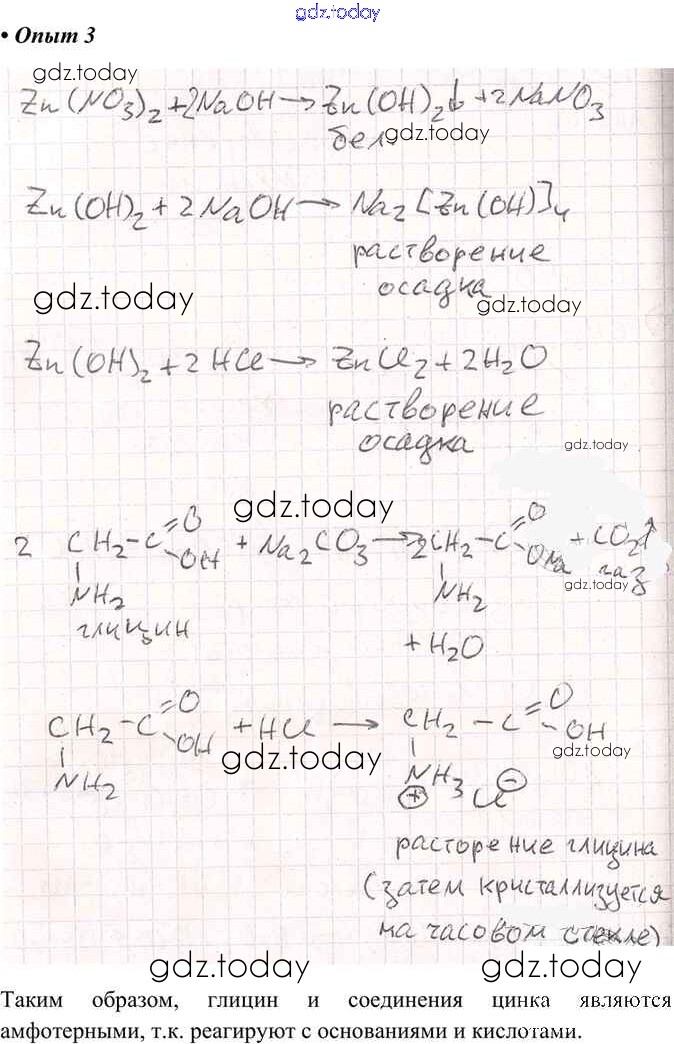 gdz.today
• Опыт 3
gdz.today
Zn(NO3)2 + 2NaOH → Zn(OH)2↓ + 2NaNO3
бел. gdz.today
Zn(OH)2 + 2NaOH → Na2[Zn(OH)]4
растворение
осадка
gdz.today gdz.today
Zn(OH)2 + 2HCl → ZnCl2 + 2H2O
растворение
осадка
gdz.today
gdz.today
2 CH2-C=O OH + Na2CO3 → 2CH2-C=O ONa + CO2↑
NH2 NH2 газ
gdz.today
глицин
+ H2O
CH2-C=O OH + HCl → CH2-C=O OH
gdz.today gdz.today
NH2 NH3 + Cl −
расторение глицина
(затем кристаллизуется
на часовом стекле)
gdz.today gdz.today
Таким образом, глицин и соединения цинка являются
амфотерными, т.к. реагируют с основаниями и кислотами.